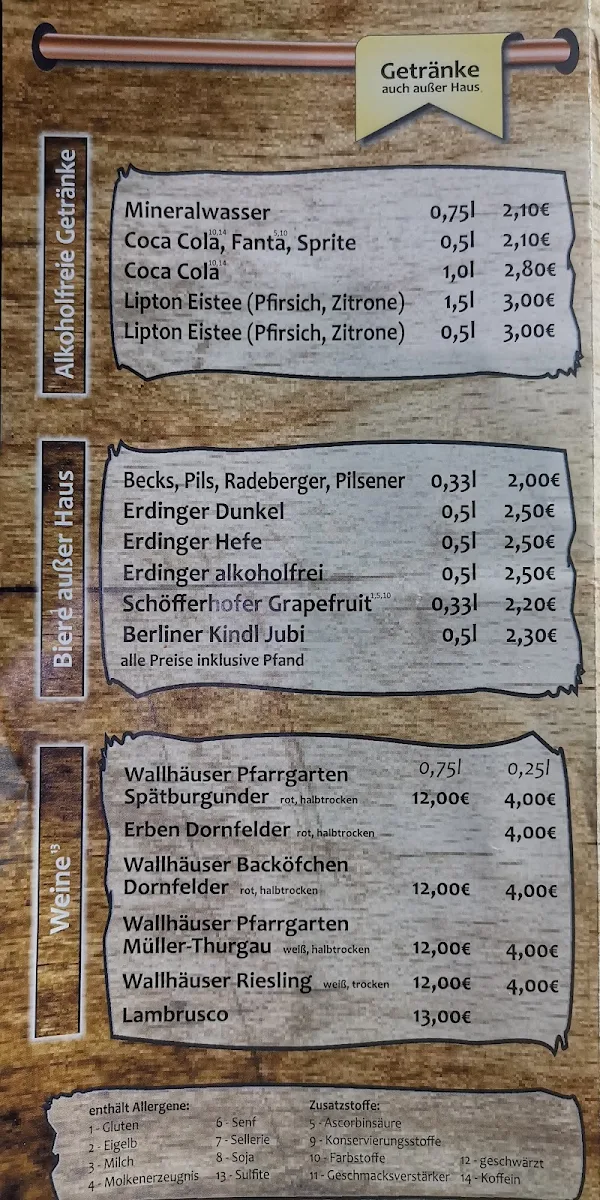 Getränke
auch außer Haus
Alkoholfreie Getränke
Mineralwasser 0,75l 2,10€
Coca Cola 10,14, Fanta 5,10, Sprite 0,5l 2,10€
Coca Cola 10,14 1,0l 2,80€
Lipton Eistee (Pfirsich, Zitrone) 1,5l 3,00€
Lipton Eistee (Pfirsich, Zitrone) 0,5l 3,00€
Biere außer Haus
Becks, Pils, Radeberger, Pilsener 0,33l 2,00€
Erdinger Dunkel 0,5l 2,50€
Erdinger Hefe 0,5l 2,50€
Erdinger alkoholfrei 0,5l 2,50€
Schöfferhofer Grapefruit 1,5,10 0,33l 2,20€
Berliner Kindl Jubi 0,5l 2,30€
alle Preise inklusive Pfand
Weine 13
0,75l 0,25l
Wallhäuser Pfarrgarten
Spätburgunder rot, halbtrocken 12,00€ 4,00€
Erben Dornfelder rot, halbtrocken 4,00€
Wallhäuser Backöfchen
Dornfelder rot, halbtrocken 12,00€ 4,00€
Wallhäuser Pfarrgarten
Müller-Thurgau weiß, halbtrocken 12,00€ 4,00€
Wallhäuser Riesling weiß, trocken 12,00€ 4,00€
Lambrusco 13,00€
enthält Allergene:
1 - Gluten
2 - Eigelb
3 - Milch
4 - Molkenerzeugnis
6 - Senf
7 - Sellerie
8 - Soja
13 - Sulfite
Zusatzstoffe:
5 - Ascorbinsäure
9 - Konservierungsstoffe
10 - Farbstoffe
11 - Geschmacksverstärker
12 - geschwärzt
14 - Koffein